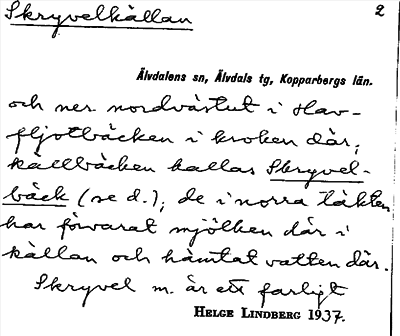 Skryvelkällan 2
Älvdalens sn, Älvdals tg, Kopparbergs län.
och ner nordvästut i Hav-
fljotbäcken i kroken där;
källbäcken kallas Skryvel-
bäck (se d.); de i norra Läkten
har förvarat mjölken där i
källan och hämtat vatten där.
Skryvel m. är ett farligt
HELGE LINDBERG 1937.